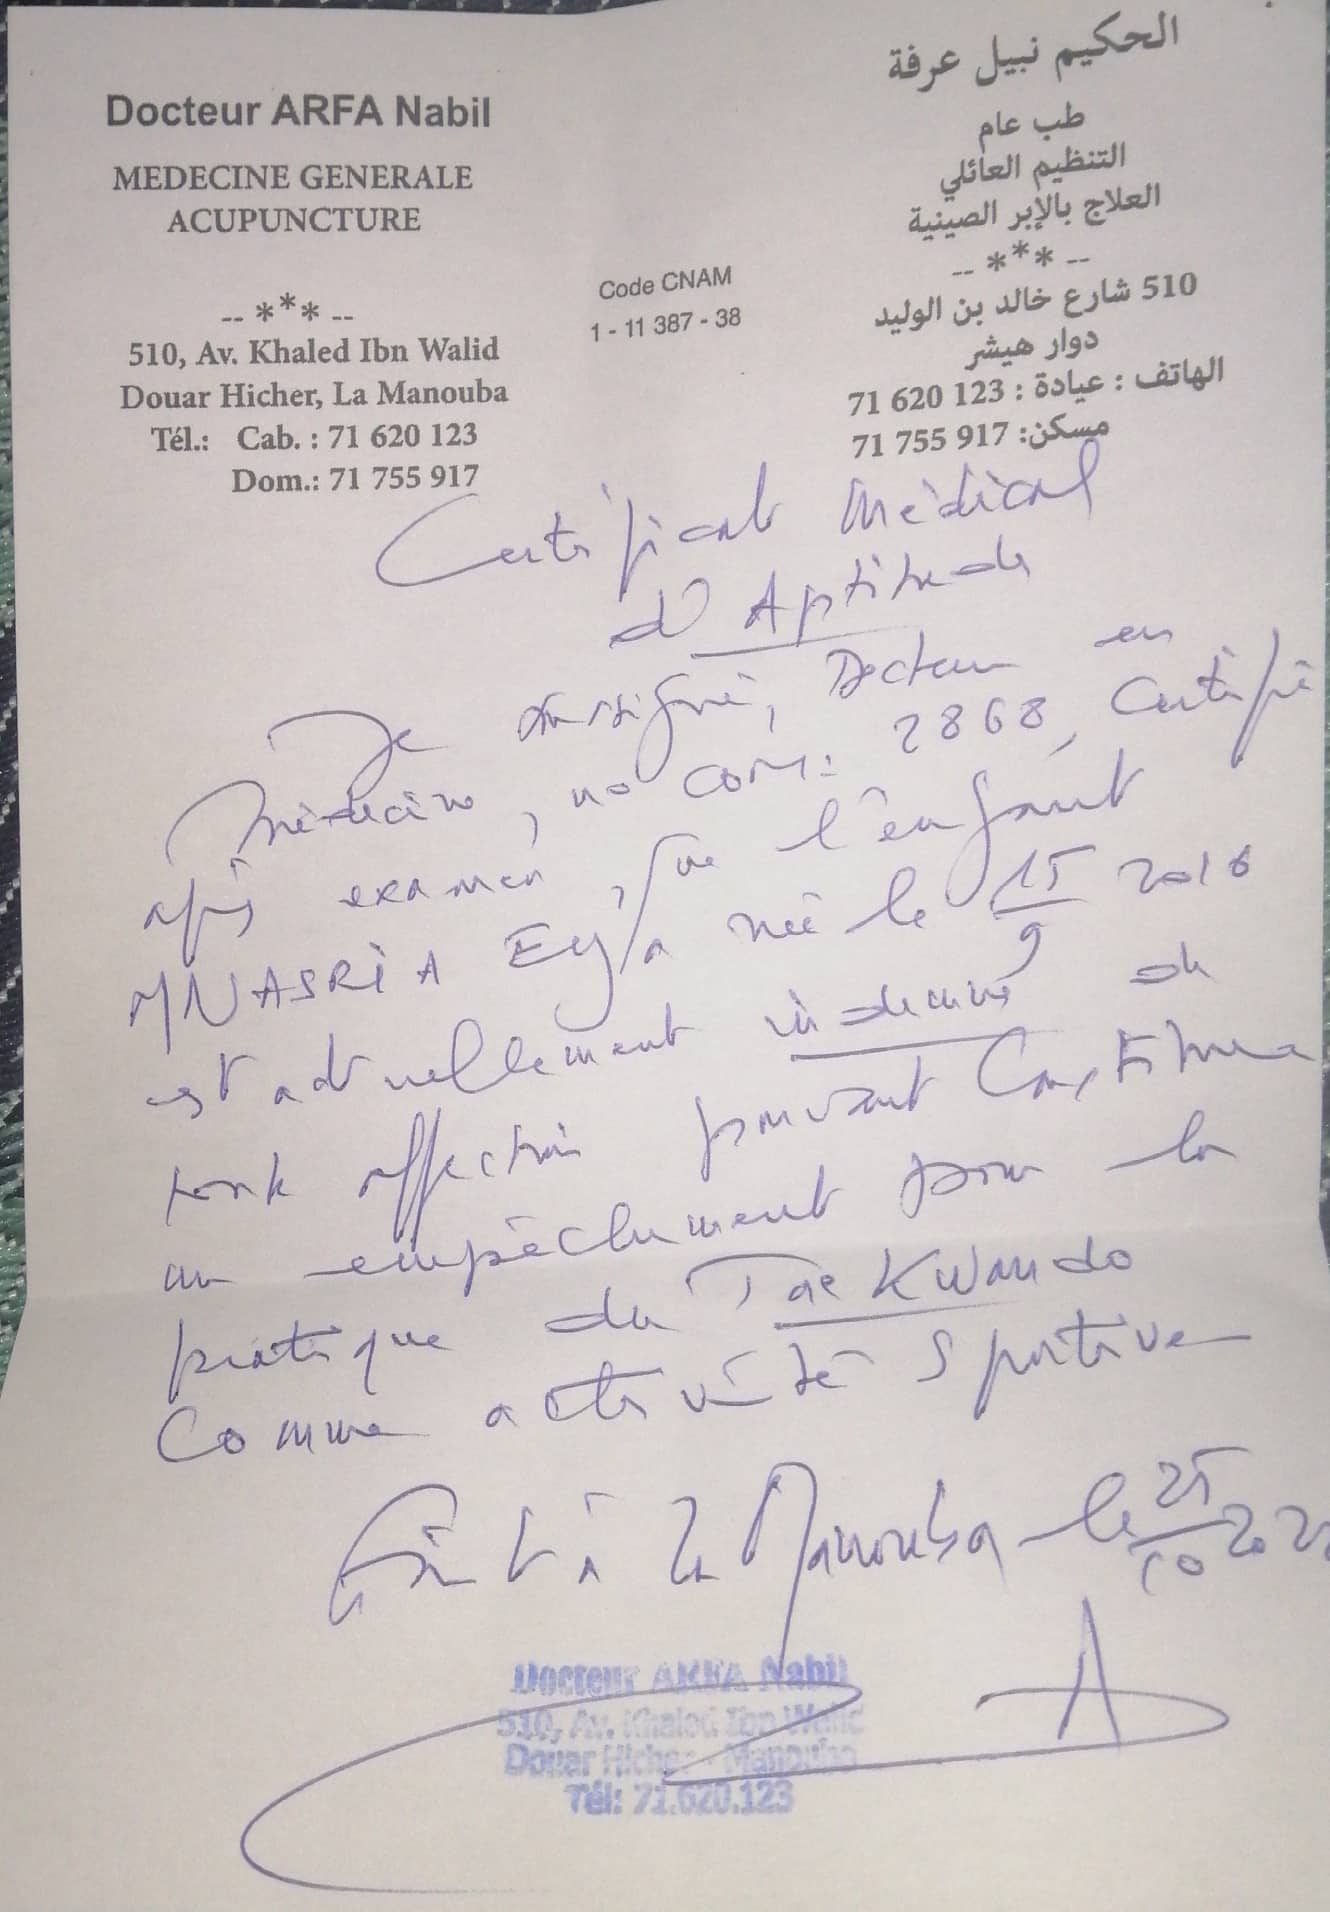 Docteur ARFA Nabil
MEDECINE GENERALE
ACUPUNCTURE
-- *** --
510, Av. Khaled Ibn Walid
Douar Hicher, La Manouba
Tél.: Cab. : 71 620 123
Dom.: 71 755 917
Code CNAM
1 - 11 387 - 38
الحكيم نبيل عرفة
طب عام
التنظيم العائلي
العلاج بالإبر الصينية
-- *** --
510 شارع خالد بن الوليد
دوار هيشر
الهاتف : عيادة : 123 620 71
مسكن: 917 755 71
Certificat Médical
d'Aptitude
Je soussigné, Docteur en
Médecine, no com: 2868, certifie
après examen, que l'enfant
MNASRIA Eya née le 15/9 2016
est actuellement indemne de
toute affection pouvant constituer
un empêchement pour la
pratique du Taekwando
comme activité sportive
Fait à la Manouba le 25/10
Docteur ARFA Nabil
510, Av. Khaled Ibn Walid
Douar Hicher - Manouba
Tél: 71.620.123